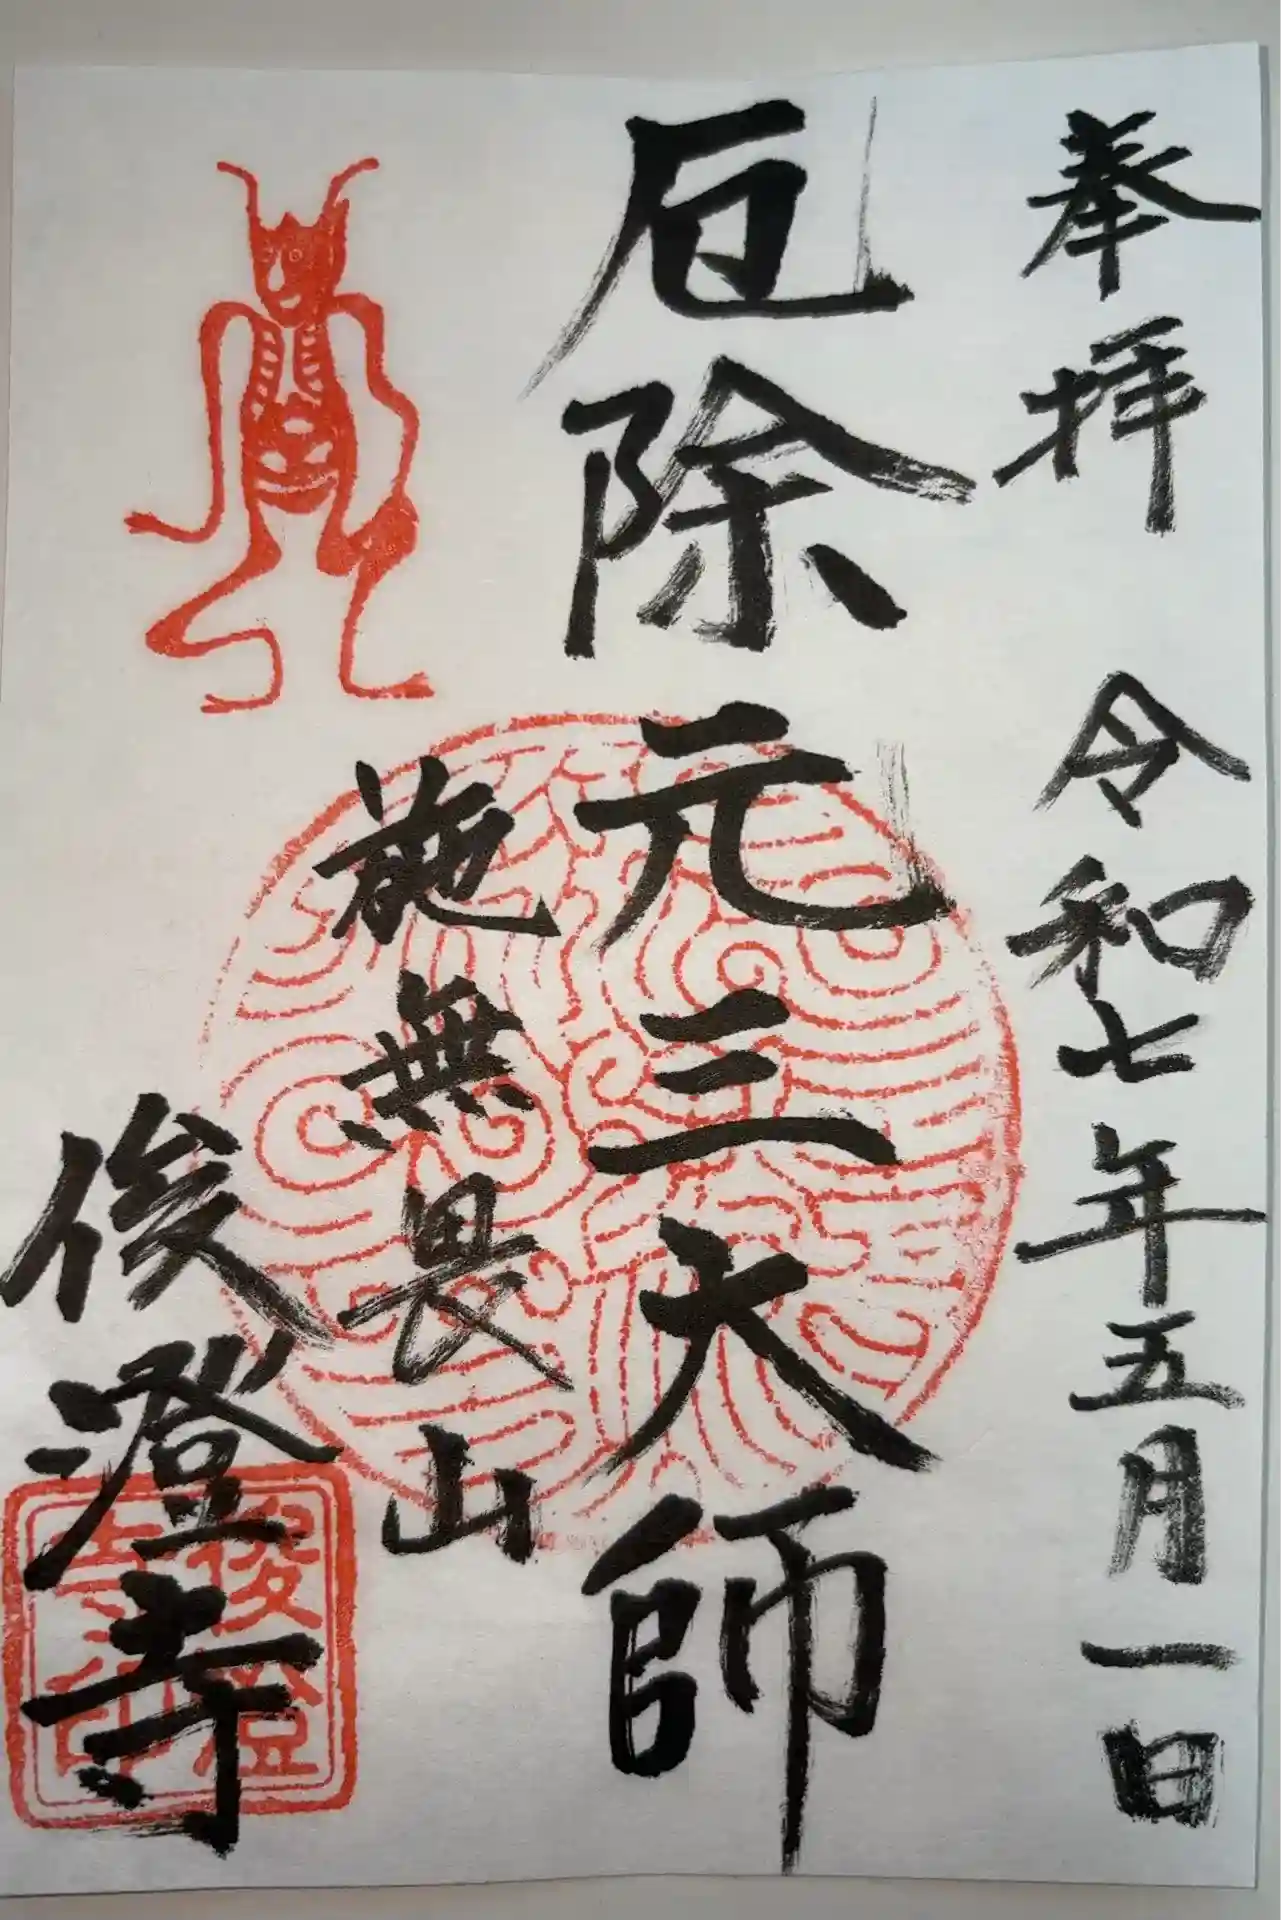 奉拝 令和七年五月一日
厄除元三大師
施無畏山
俊澄寺
俊澄寺印